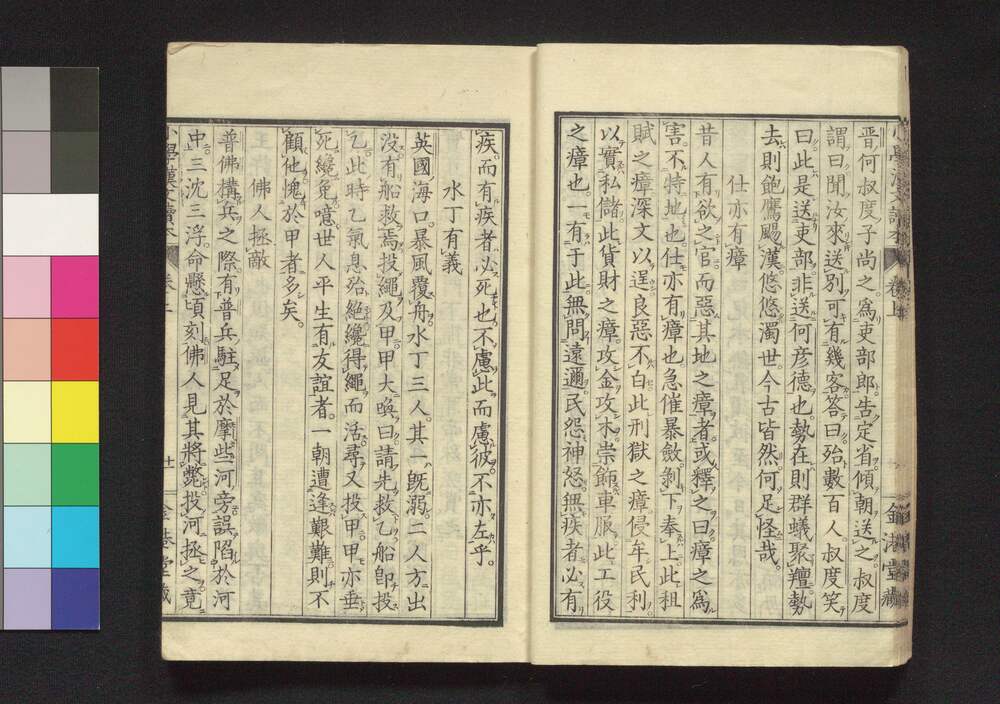 小學漢文讀本 卷上 金港堂藏
晋何叔度子尚之爲吏部郎告定省傾朝送之叔度
謂曰聞汝來送別可有幾客答曰殆數百人叔度笑
曰此是送吏部非送何彦德也勢在則群蟻聚羶勢
去則飽鷹颺漢悠悠濁世今古皆然何足怪哉
仕亦有瘴
昔人有欲之官而惡其地之瘴者或釋之曰瘴之爲
害不特地也仕亦有瘴也急催暴斂剝下奉上此租
賦之瘴深文以逞良惡不白此刑獄之瘴侵牟民利
以實私儲此貨財之瘴攻金攻木崇飾車服此工役
之瘴也一有于此無間遠邇民怨神怒無疾者必有
疾而有疾者必死也不慮此而慮彼不亦左乎
水丁有義
英國海口暴風覆舟水丁三人其一既溺二人方出
没有船救焉投繩及甲甲大喚曰請先救乙船卽投
乙此時乙氣息殆絶纔得繩而活尋又投甲甲亦垂
死纔免噫世人平生有友誼者一朝遭逢艱難則不
顧他愧於甲者多矣
佛人拯敵
普佛構兵之際有普兵駐足於摩些河旁誤陷於河
中三沈三浮命懸頃刻佛人見其將斃投河拯之竟
小學漢文讀本 卷上 十一 金港堂藏